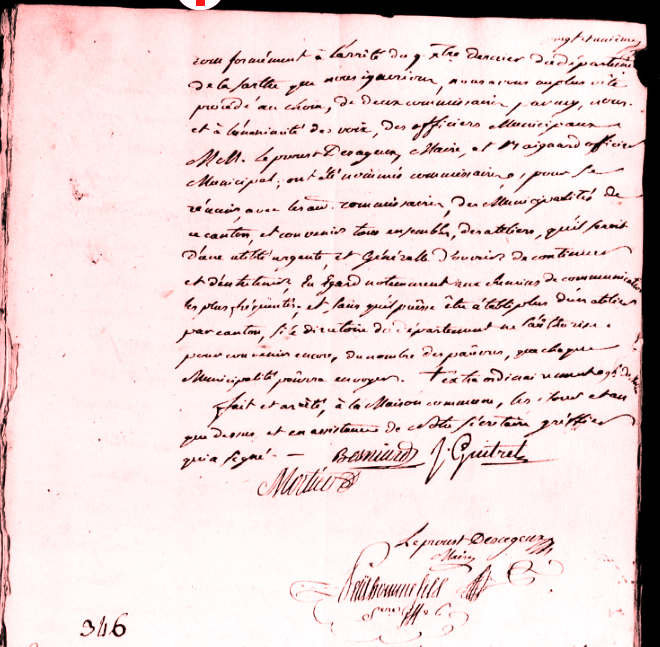 vingt et unieme
conformément à l'arrêté du 9 xbre dernier du département
de la Sarthe que nous ignorions, nous avons au plus vite
procédé au choix, de deux commissaires parmy, nous.
et à l'unanimité des voix, des officiers Municipaux
MM. Leproust Desageux, Maire, et Maigaard officier
Municipal, ont été nommés commissaires, pour se
réunir, avec les autres commissaires, des Municipalités de
ce canton, et convenir tous ensembles, des ateliers, qu'il seroit
d'une utilité urgente, et Généralle d'ouvrir de continuer
et d'entretenir, En Egard notamment aux chemins de communication
les plus fréquentés, et sans qu'il puisse être établi plus d'un atelier
par canton, si le directoire du département ne l'authorise.
pour convenir encore, du nombre des pauvres, que chaque
Municipalité pourra envoyer. † extraordinairement
fait et arrêté, à la Maison commune, les jour et an
que dessus et en assistance de Notre Secrétaire greffier
qui a signé. —
Besniard J. Guitrel
Mortier
Leproust Desageux
Maire
346